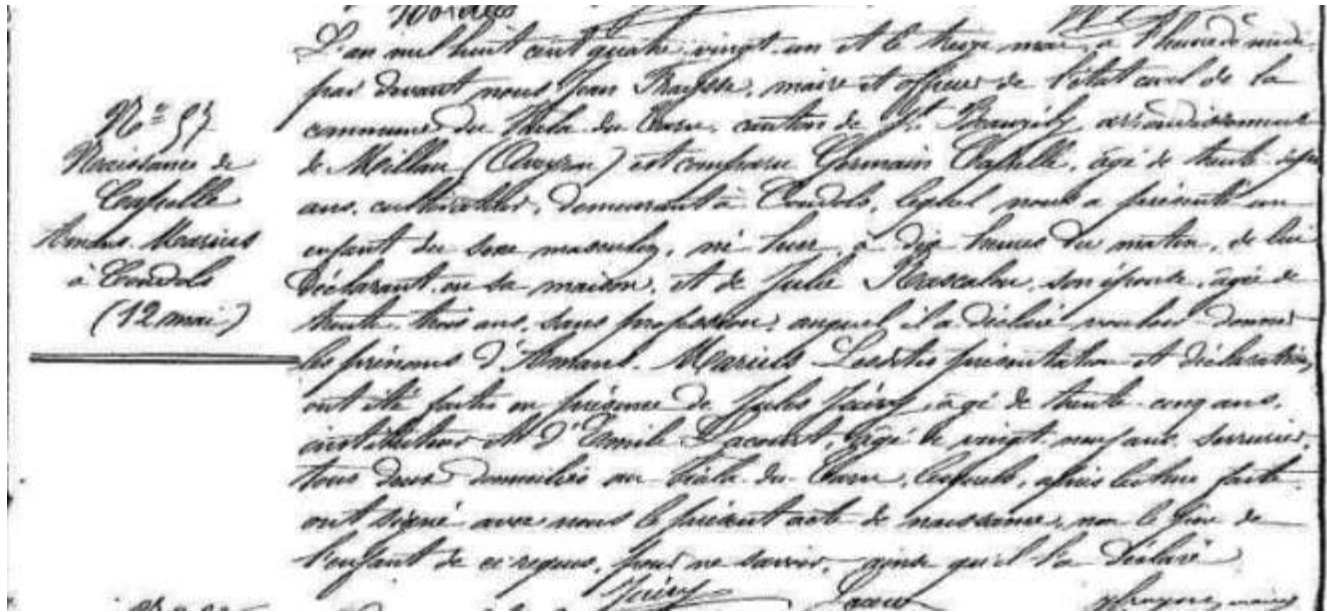 N° 57
Naissance de
Capelle
Amans Marius
à Candols
(12 mai)
L'an mil huit cent quatre vingt un et le treize mai, à l'heure de midi
par devant nous Jean Fraysse, maire et officier de l'état civil de la
commune du Viala du Tarn, canton de St Beauzély, arrondissement
de Millau (Aveyron) est comparu Germain Capelle, âgé de trente sept
ans, cultivateur, demeurant à Candols, lequel nous a présenté un
enfant du sexe masculin, né hier, à dix heures du matin, de lui
déclarant, en sa maison, et de Julie Rascalou, son épouse, âgée de
trente trois ans, sans profession, auquel il a déclaré vouloir donner
les prénoms d'Amans Marius Lesdites présentation et déclaration
ont été faites en présence de Jules Joiry, âgé de trente cinq ans,
instituteur et d'Emile Lacourt, âgé de vingt neuf ans, serrurier,
tous deux domiciliés au Viala du Tarn, lesquels, après lecture faite
ont signé avec nous le présent acte de naissance, non le père de
l'enfant de ce requis, pour ne savoir, ainsi qu'il l'a déclaré
Joiry Lacourt Fraysse, maire